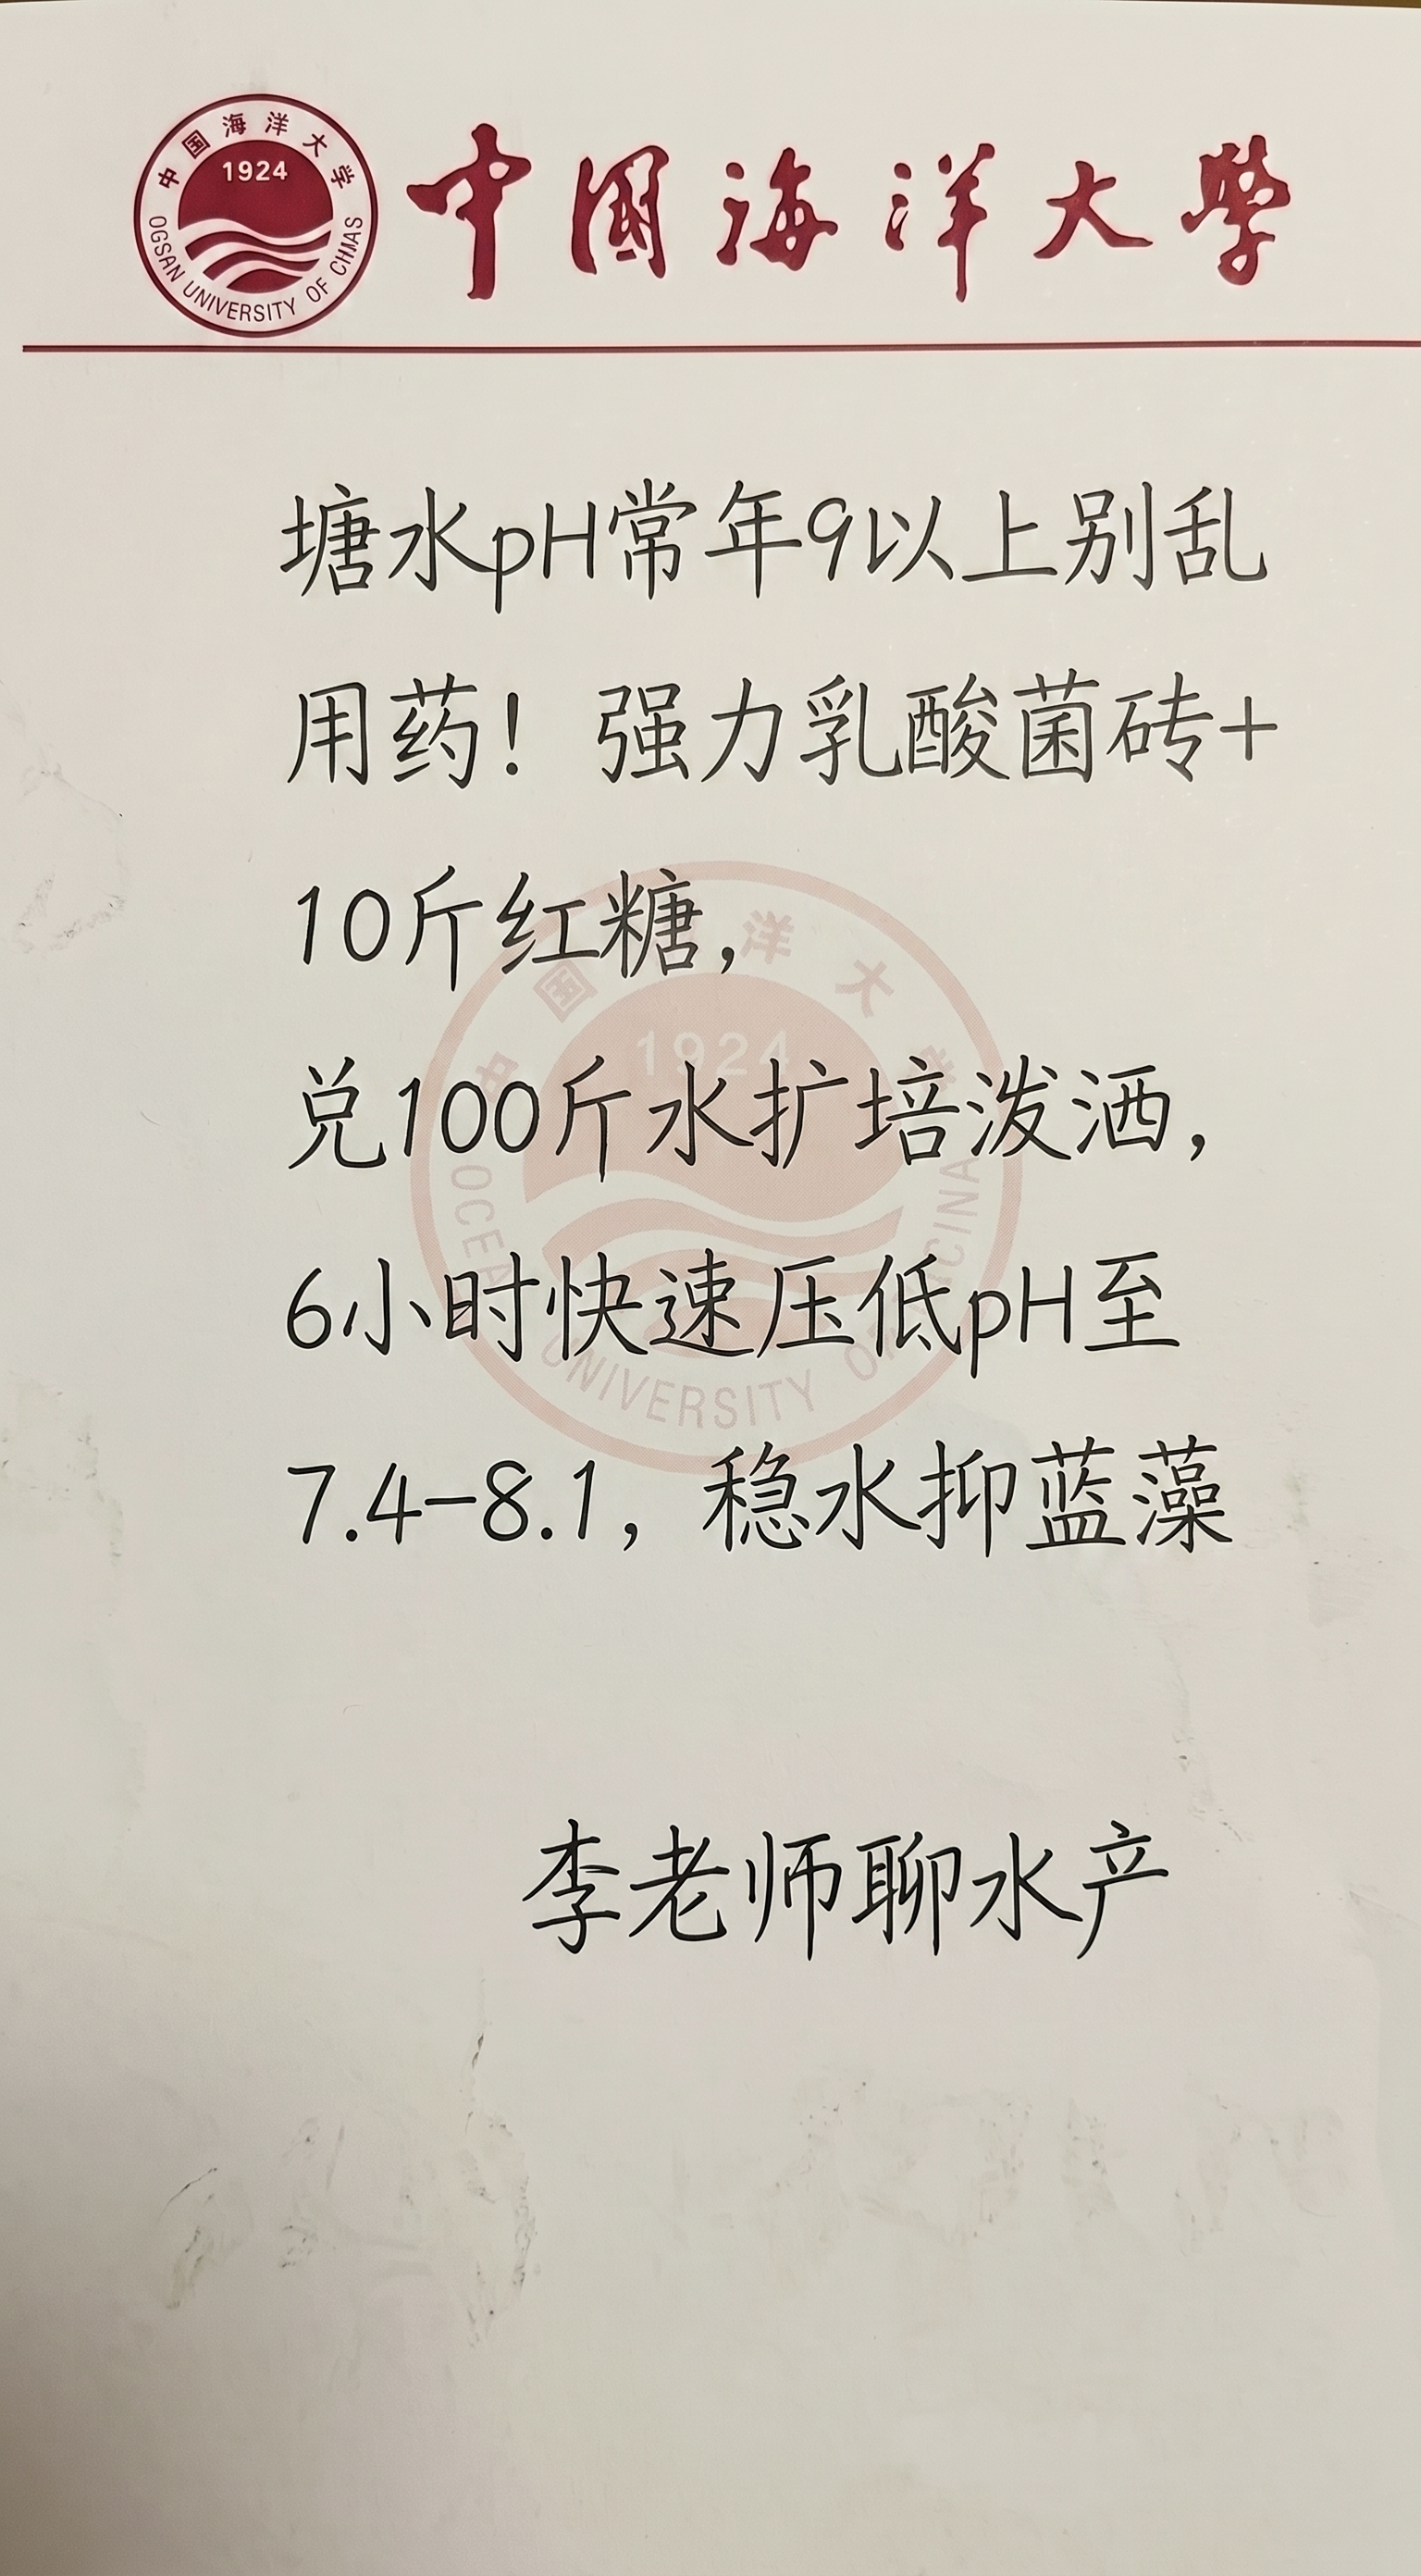 中国海洋大学
1924
OGSAN UNIVERSITY OF CHMAS
中國海洋大學
塘水pH常年9以上别乱
用药！强力乳酸菌砖+
10斤红糖，
兑100斤水扩培泼洒，
6小时快速压低pH至
7.4-8.1，稳水抑蓝藻
李老师聊水产
1924
UNIVERSITY